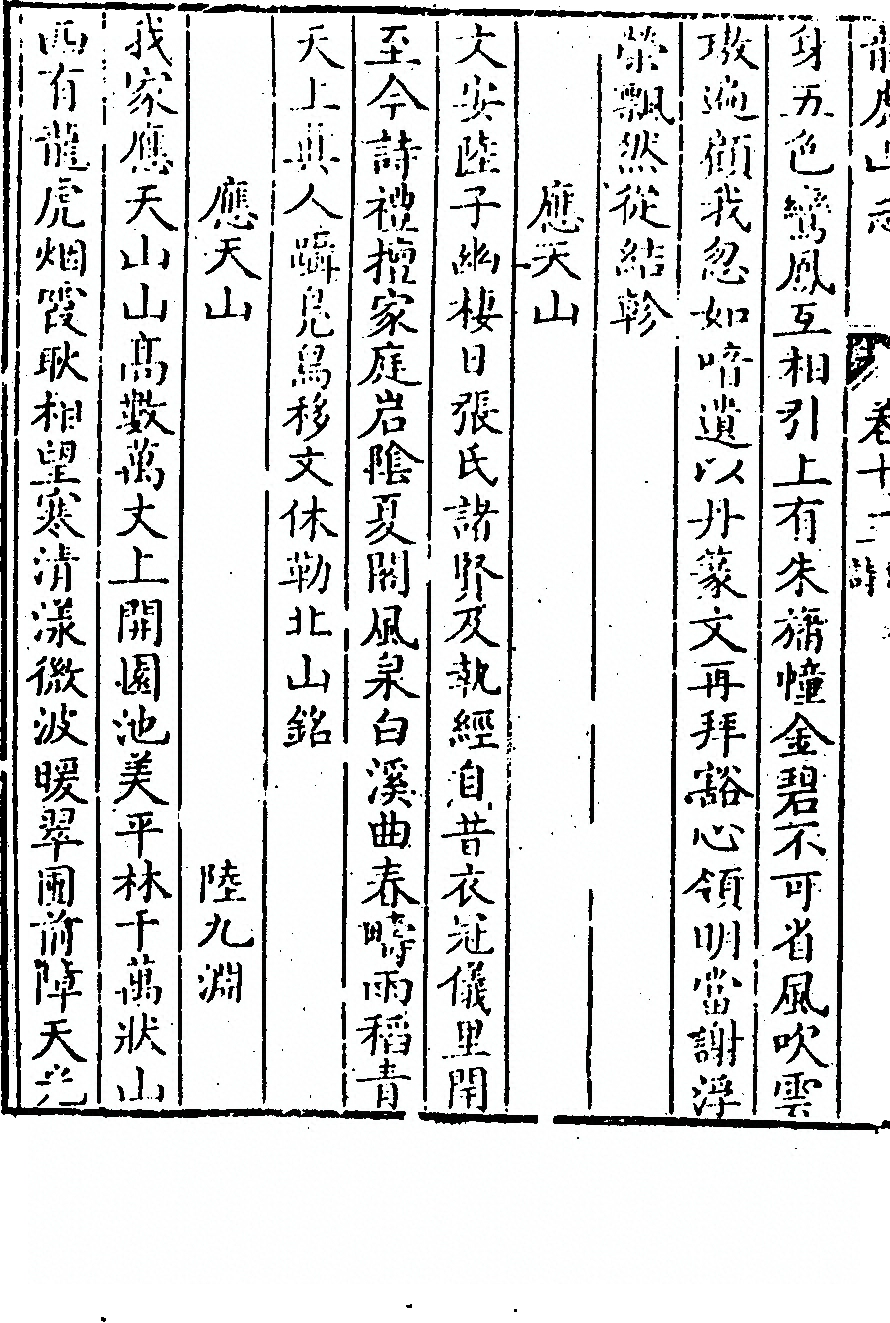 龍虎山志 卷十三 詩
身五色鸞鳳互相引上有朱旛幢金碧不可省風吹雲
璈逈顧我忽如喑遺以丹篆文再拜豁心領明當謝浮
榮飄然從結軫
應天山
文安陸子幽棲日張氏諸賢及執經自昔衣冠儀里閈
至今詩禮擅家庭岩陰夏閣風泉白溪曲春疇雨稻青
天上真人躡鳬舄移文休勒北山銘
應天山 陸九淵
我家應天山山高數萬丈上開園池美平林千萬狀山
西有龍虎烟霞耿相望寒清漾微波暖翠圍前障天光